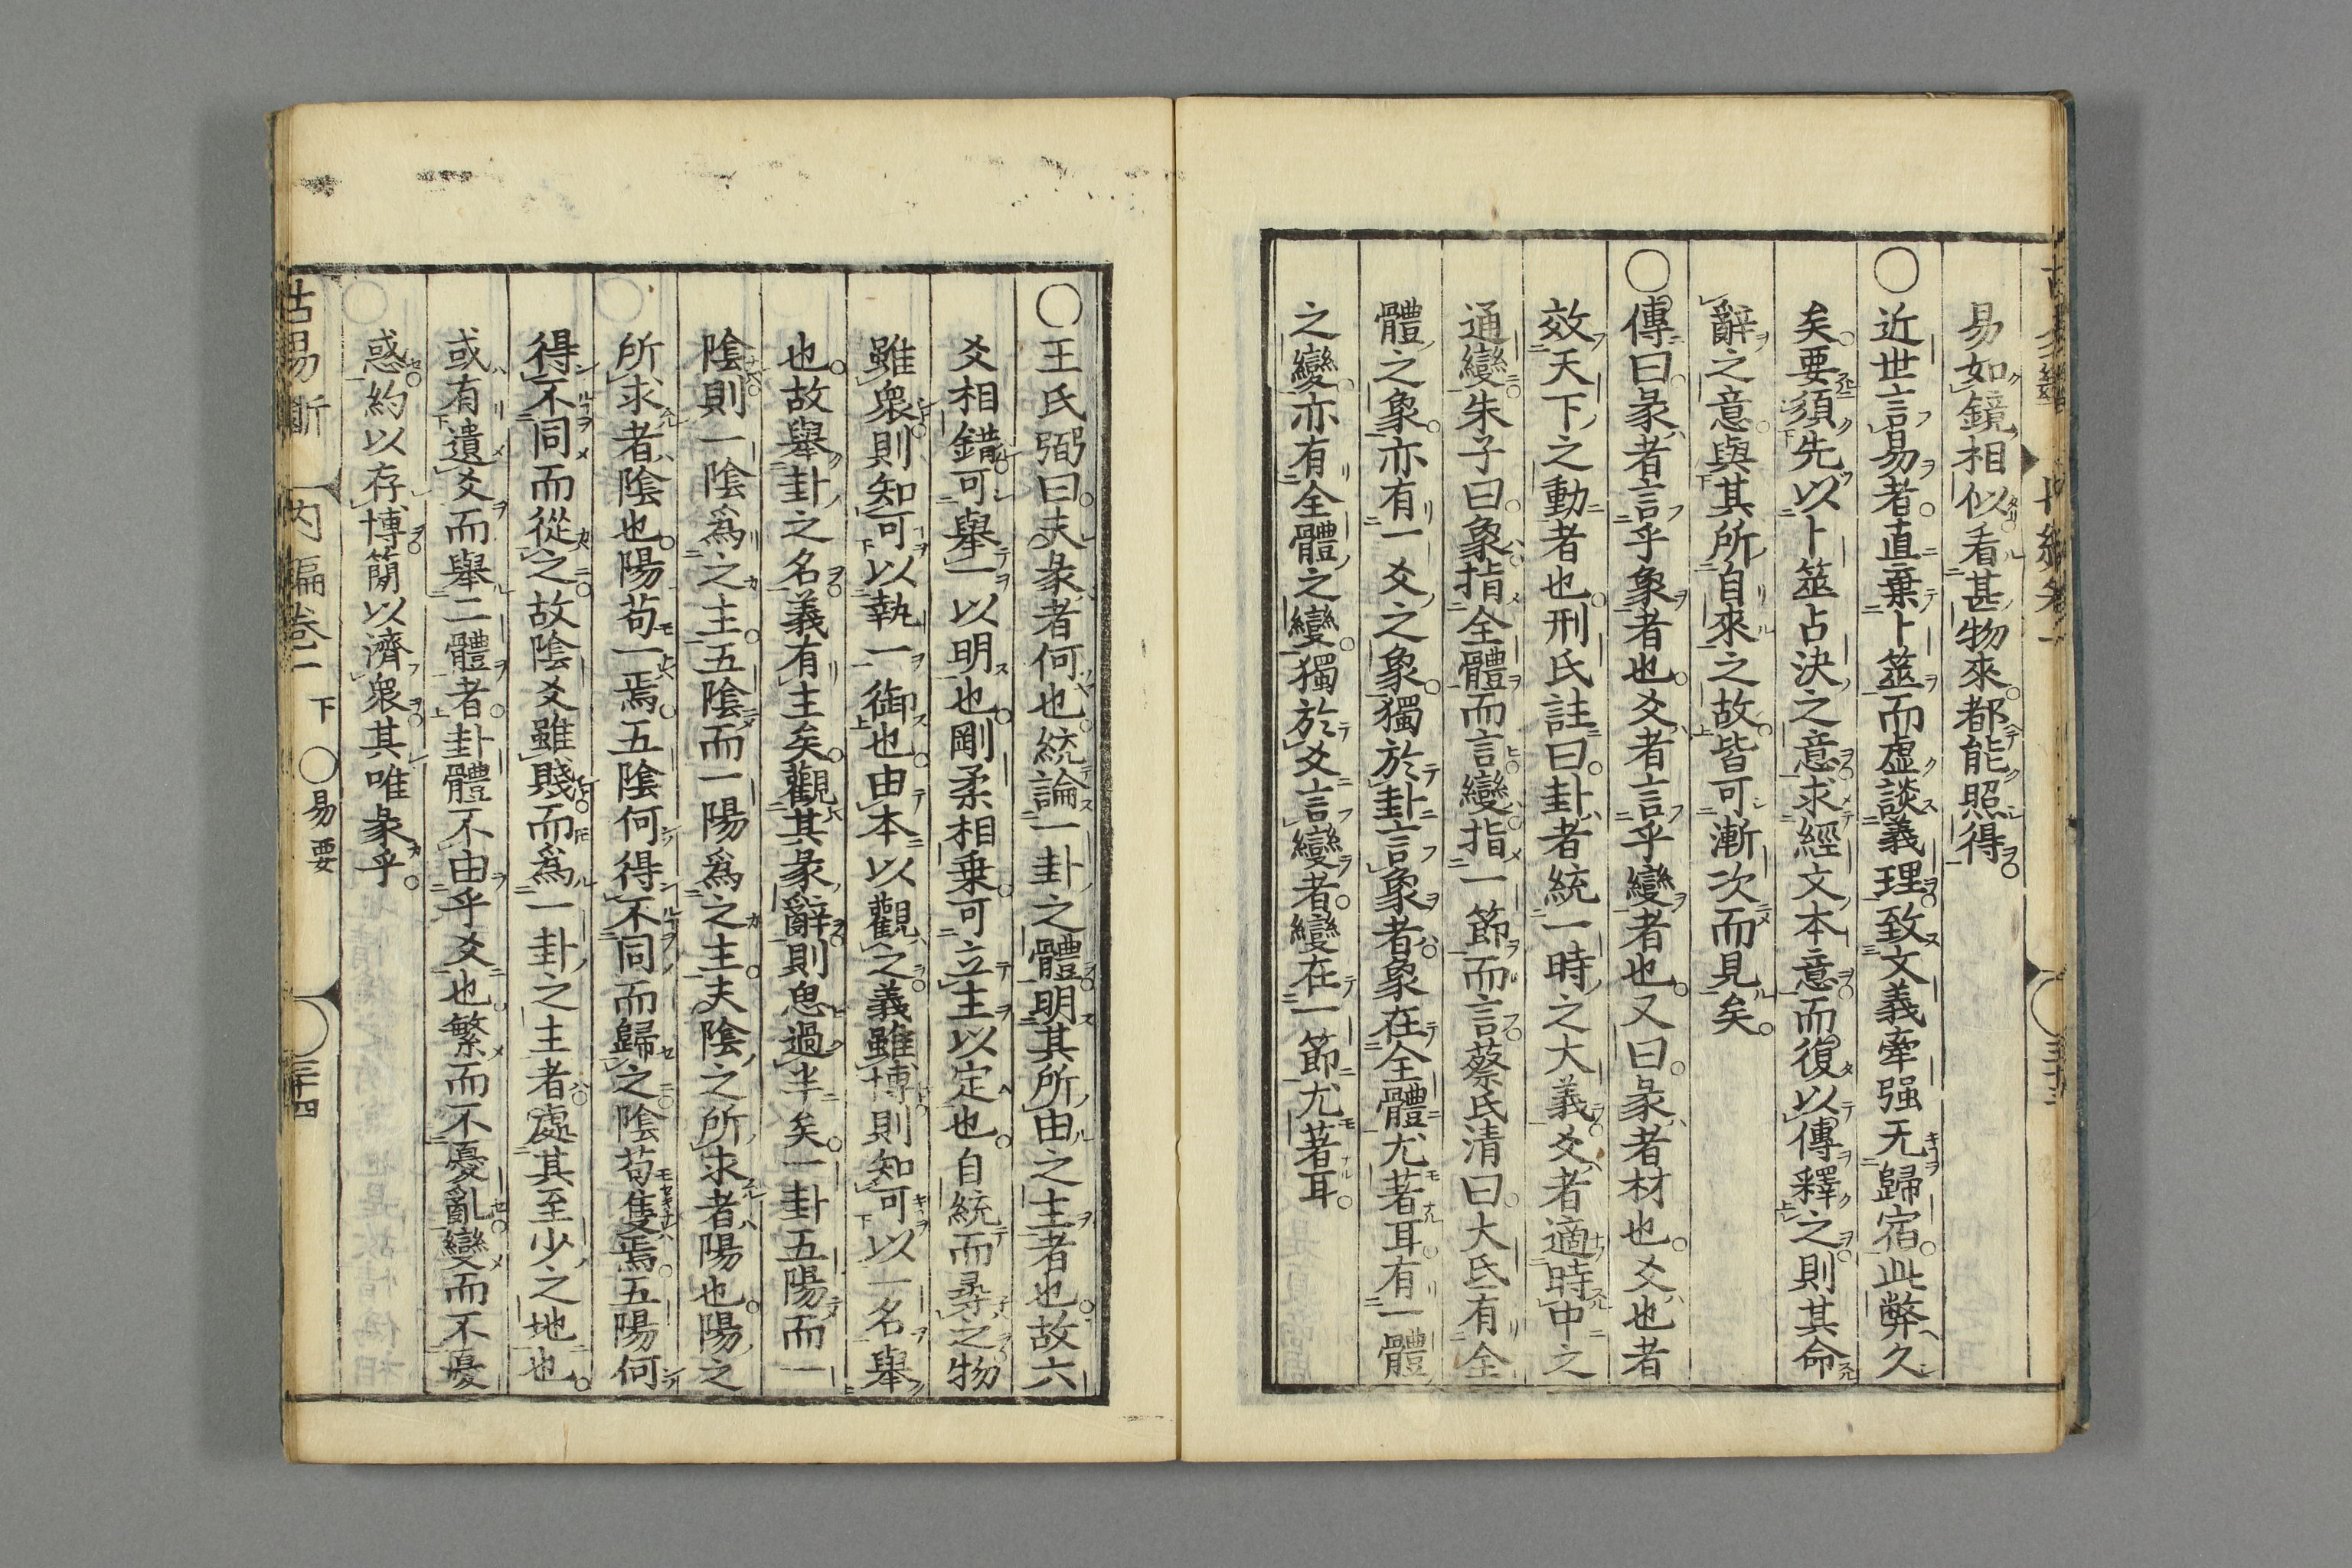 易如鏡相似看甚物來都能照得
○近世言易者直棄卜筮而虛談義理致文義牽强无歸宿此弊久
矣要須先以卜筮占決之意求經文本意而復以傳釋之則其命
辭之意與其所自來之故皆可漸次而見矣
○傳曰彖者言乎象者也爻者言乎變者也又曰彖者材也爻也者
效天下之動者也刑氏註曰卦者統一時之大義爻者適時中之
通變朱子曰象指全體而言變指一節而言蔡氏清曰大氐有全
體之象亦有一爻之象獨於卦言象者象在全體尤著耳有一體
之變亦有全體之變獨於爻言變者變在一節尤著耳
○王氏弼曰夫彖者何也統論一卦之體明其所由之主者也故六
爻相錯可舉一以明也剛柔相乗可立主以定也自統而尋之物
雖衆則知可以執一御也由本以觀之義雖博則知可以一名舉
也故舉卦之名義有主矣觀其彖辭則思過半矣一卦五陽而一
陰則一陰爲之主五陰而一陽爲之主夫陰之所求者陽也陽之
所求者陰也陽苟一焉五陰何得不同而歸之陰苟隻焉五陽何
得不同而從之故陰爻雖賤而爲一卦之主者處其至少之地也
或有遺爻而舉二體者卦體不由乎爻也繁而不憂亂變而不憂
惑約以存博簡以濟衆其唯彖乎
古易斷 内編卷二 下 ○易要 三十四